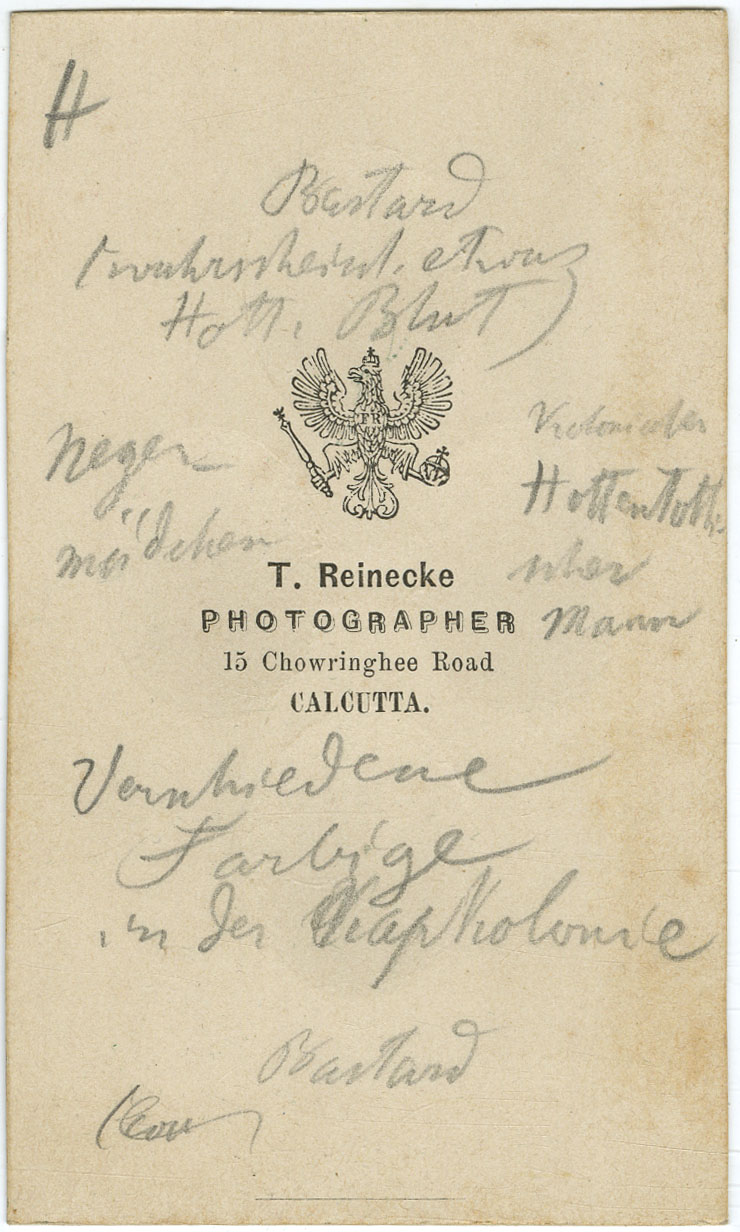 H
Bastard
(wahrscheinl. etwas
Hott. Blut)
FR
Neger
mädchen
Hottentotti
scher
Mann
T. Reinecke
PHOTOGRAPHER
15 Chowringhee Road
CALCUTTA.
Verschiedene
Farbige
in der Kapkolonie
Bastard